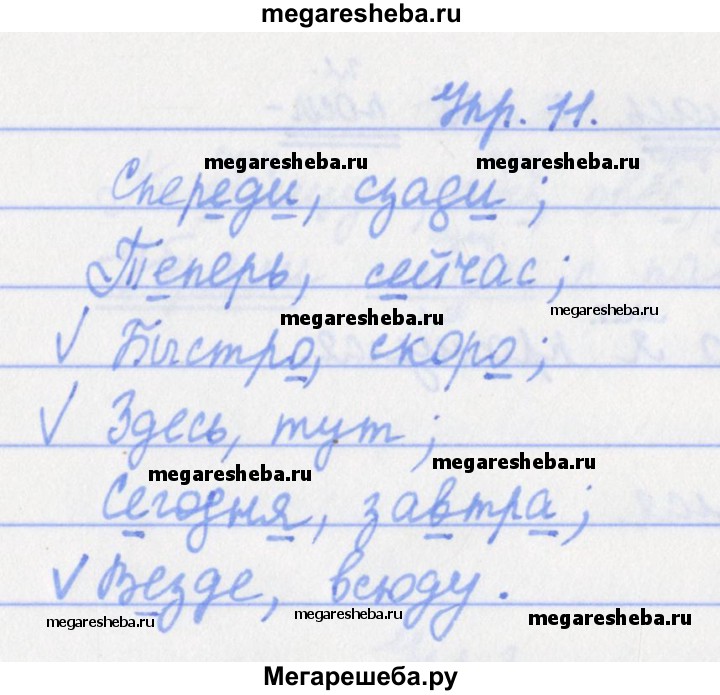 megaresheba.ru
Упр. 11.
megaresheba.ru megaresheba.ru
Спереди, сзади;
Теперь, сейчас;
megaresheba.ru
megaresheba.ru
√ Быстро, скоро;
√ Здесь, тут;
megaresheba.ru
megaresheba.ru
Сегодня, завтра;
√ Везде, всюду.
megaresheba.ru megaresheba.ru megaresheba.ru
Мегарешеба.ру